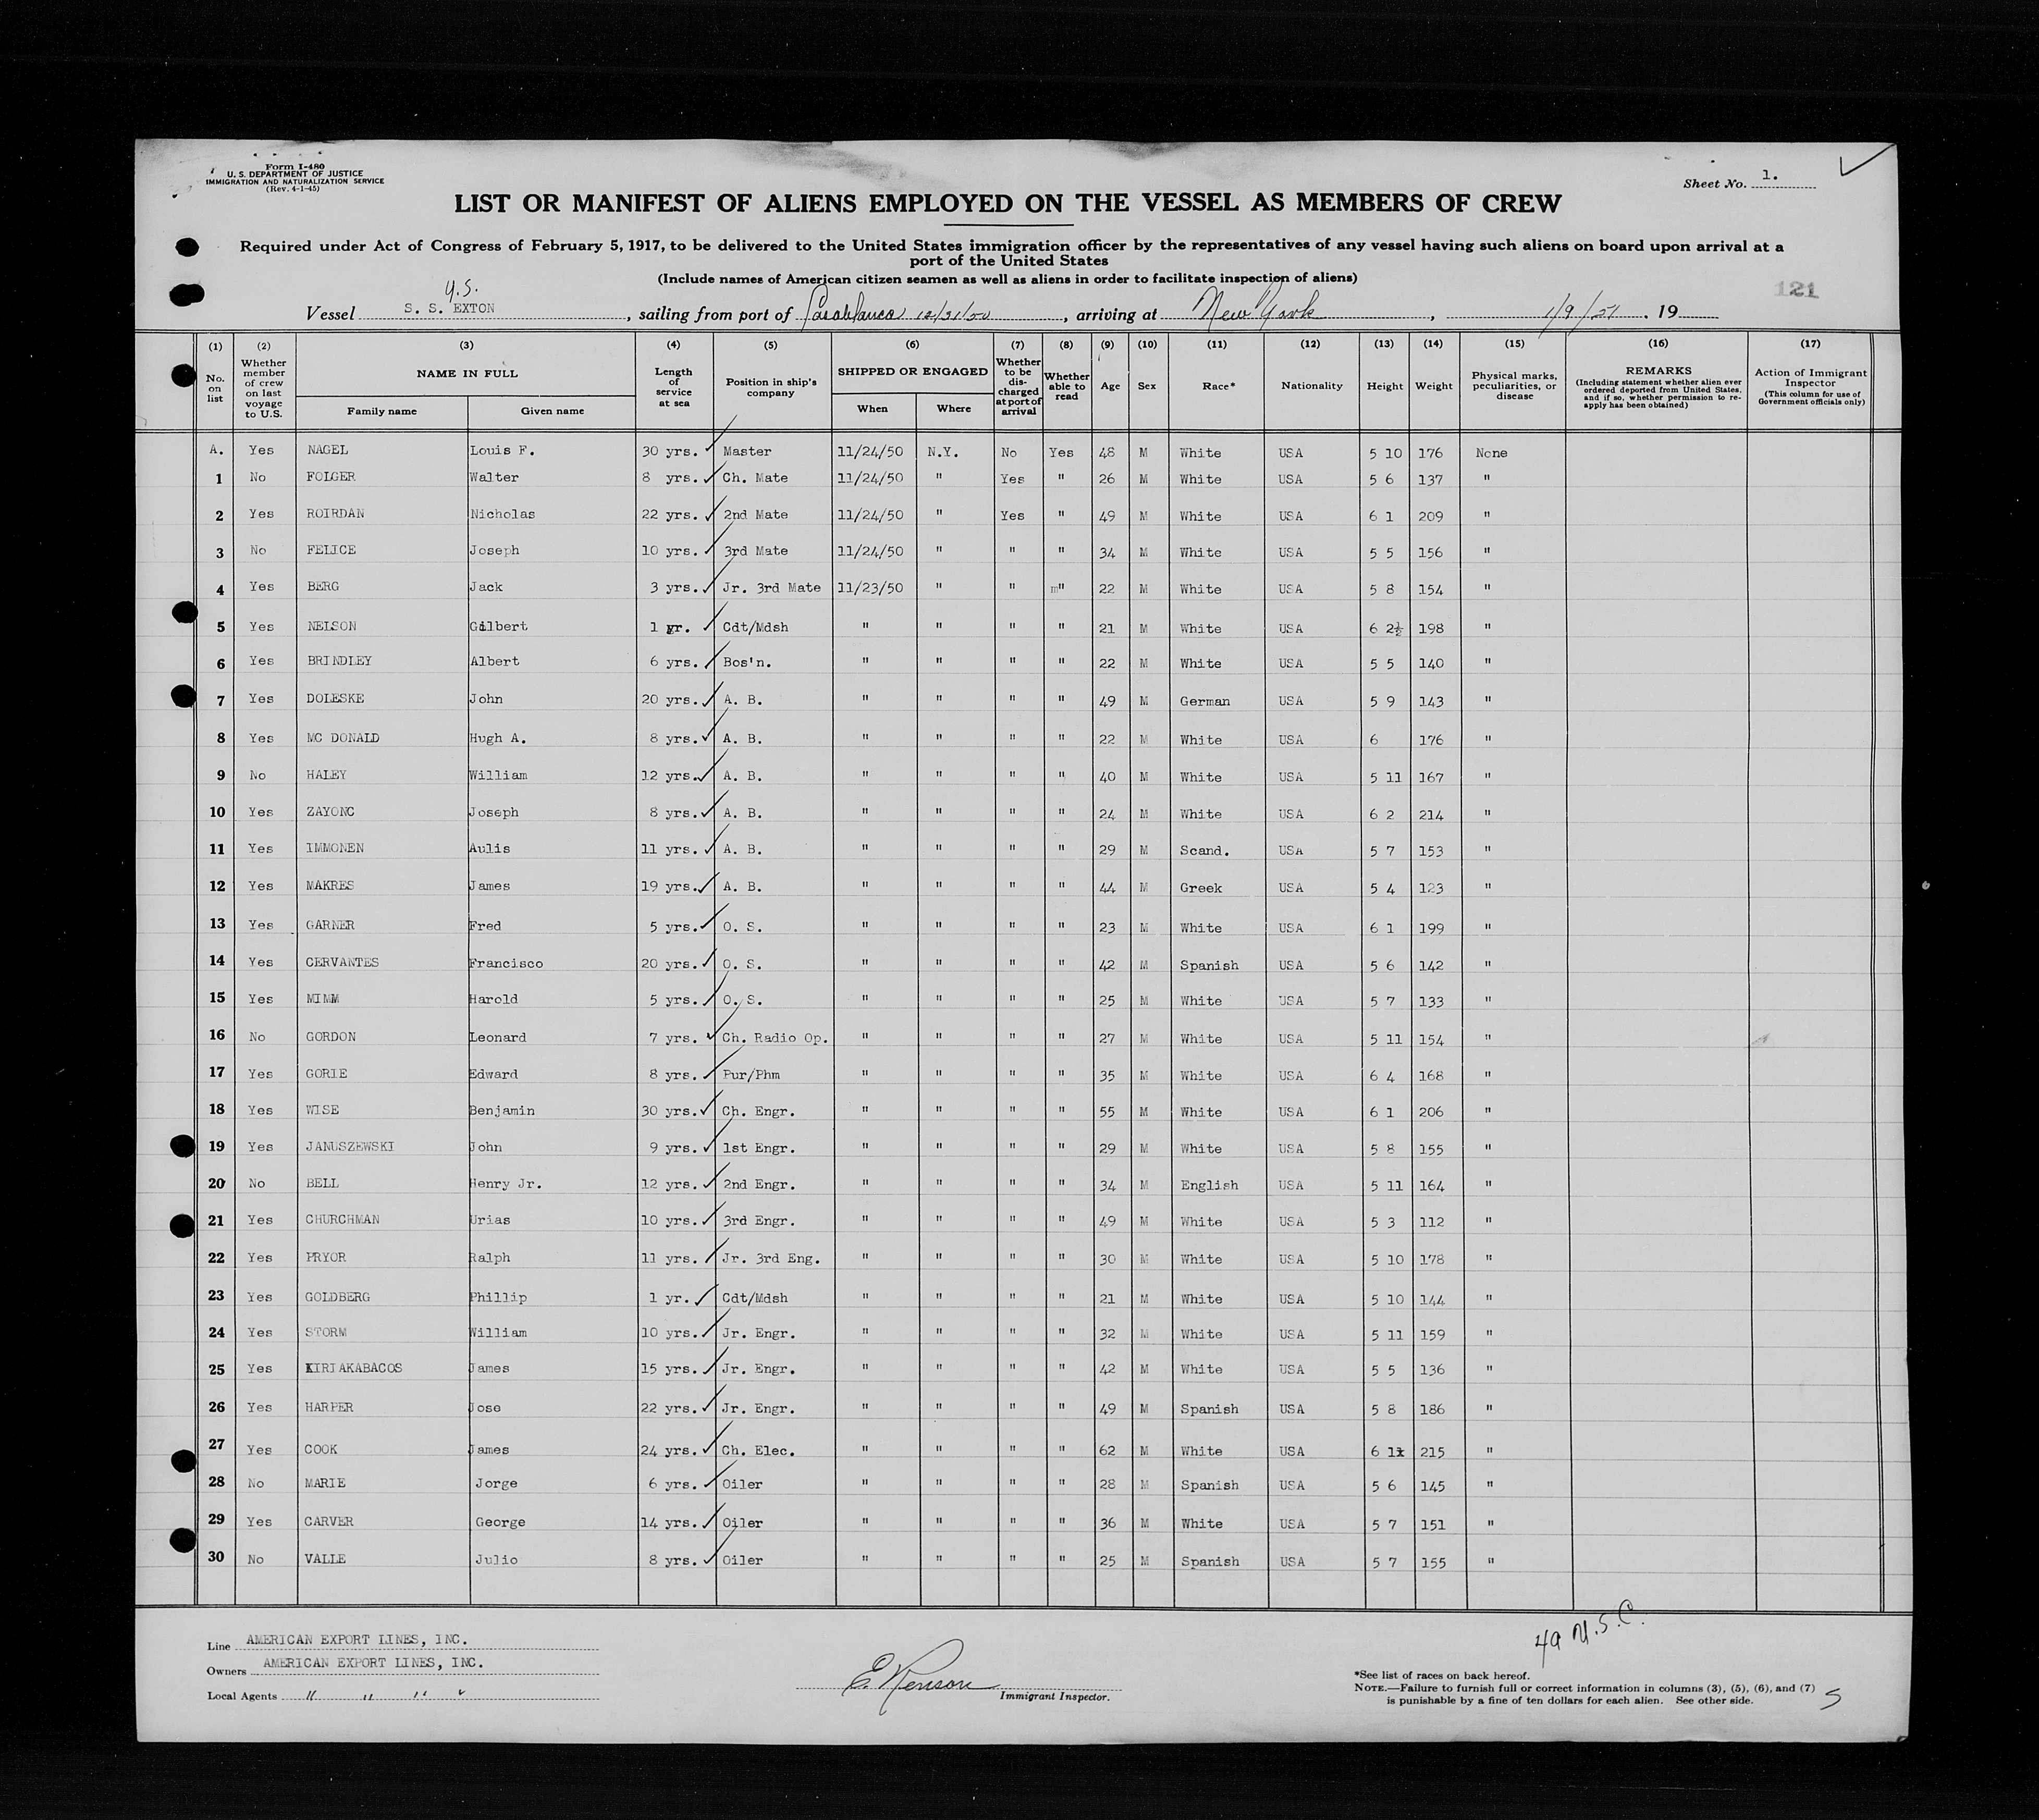 Form I-480
U. S. DEPARTMENT OF JUSTICE
IMMIGRATION AND NATURALIZATION SERVICE
(Rev. 4-1-45)
Sheet No. 1.
LIST OR MANIFEST OF ALIENS EMPLOYED ON THE VESSEL AS MEMBERS OF CREW
Required under Act of Congress of February 5, 1917, to be delivered to the United States immigration officer by the representatives of any vessel having such aliens on board upon arrival at a
port of the United States
(Include names of American citizen seamen as well as aliens in order to facilitate inspection of aliens)
121
U.S.
Vessel S. S. EXTON, sailing from port of Casablanca 12/31/50, arriving at New York, 1/9/51. 19
(1) (2) (3) (4) (5) (6) (7) (8) (9) (10) (11) (12) (13) (14) (15) (16) (17)
No. on list Whether member of crew on last voyage to U.S. NAME IN FULL Family name Given name Length of service at sea Position in ship's company SHIPPED OR ENGAGED When Where Whether to be discharged at port of arrival Whether able to read Age Sex Race* Nationality Height Weight Physical marks, peculiarities, or disease REMARKS (Including statement whether alien ever ordered deported from United States, and if so, whether permission to reapply has been obtained) Action of Immigrant Inspector (This column for use of Government officials only)
A. Yes NAGEL Louis F. 30 yrs. Master 11/24/50 N.Y. No Yes 48 M White USA 5 10 176 None
1 No FOLGER Walter 8 yrs. Ch. Mate 11/24/50 " Yes " 26 M White USA 5 6 137 "
2 Yes ROIRDAN Nicholas 22 yrs. 2nd Mate 11/24/50 " Yes " 49 M White USA 6 1 209 "
3 No FELICE Joseph 10 yrs. 3rd Mate 11/24/50 " " " 34 M White USA 5 5 156 "
4 Yes BERG Jack 3 yrs. Jr. 3rd Mate 11/23/50 " " m" 22 M White USA 5 8 154 "
5 Yes NELSON Gilbert 1 yr. Cdt/Mdsh " " " " 21 M White USA 6 2½ 198 "
6 Yes BRINDLEY Albert 6 yrs. Bos'n. " " " " 22 M White USA 5 5 140 "
7 Yes DOLESKE John 20 yrs. A. B. " " " " 49 M German USA 5 9 143 "
8 Yes MC DONALD Hugh A. 8 yrs. A. B. " " " " 22 M White USA 6 176 "
9 No HALEY William 12 yrs. A. B. " " " " 40 M White USA 5 11 167 "
10 Yes ZAYONC Joseph 8 yrs. A. B. " " " " 24 M White USA 6 2 214 "
11 Yes IMMONEN Aulis 11 yrs. A. B. " " " " 29 M Scand. USA 5 7 153 "
12 Yes MAKRES James 19 yrs. A. B. " " " " 44 M Greek USA 5 4 123 "
13 Yes GARNER Fred 5 yrs. O. S. " " " " 23 M White USA 6 1 199 "
14 Yes CERVANTES Francisco 20 yrs. O. S. " " " " 42 M Spanish USA 5 6 142 "
15 Yes MIMM Harold 5 yrs. O. S. " " " " 25 M White USA 5 7 133 "
16 No GORDON Leonard 7 yrs. Ch. Radio Op. " " " " 27 M White USA 5 11 154 "
17 Yes GORIE Edward 8 yrs. Pur/Phm " " " " 35 M White USA 6 4 168 "
18 Yes WISE Benjamin 30 yrs. Ch. Engr. " " " " 55 M White USA 6 1 206 "
19 Yes JANUSZEWSKI John 9 yrs. 1st Engr. " " " " 29 M White USA 5 8 155 "
20 No BELL Henry Jr. 12 yrs. 2nd Engr. " " " " 34 M English USA 5 11 164 "
21 Yes CHURCHMAN Urias 10 yrs. 3rd Engr. " " " " 49 M White USA 5 3 112 "
22 Yes PRYOR Ralph 11 yrs. Jr. 3rd Eng. " " " " 30 M White USA 5 10 178 "
23 Yes GOLDBERG Phillip 1 yr. Cdt/Mdsh " " " " 21 M White USA 5 10 144 "
24 Yes STORM William 10 yrs. Jr. Engr. " " " " 32 M White USA 5 11 159 "
25 Yes KIRIAKABACOS James 15 yrs. Jr. Engr. " " " " 42 M White USA 5 5 136 "
26 Yes HARPER Jose 22 yrs. Jr. Engr. " " " " 49 M Spanish USA 5 8 186 "
27 Yes COOK James 24 yrs. Ch. Elec. " " " " 62 M White USA 6 1 215 "
28 No MARIE Jorge 6 yrs. Oiler " " " " 28 M Spanish USA 5 6 145 "
29 Yes CARVER George 14 yrs. Oiler " " " " 36 M White USA 5 7 151 "
30 No VALLE Julio 8 yrs. Oiler " " " " 25 M Spanish USA 5 7 155 "
49 U.S.C.
Line AMERICAN EXPORT LINES, INC.
Owners AMERICAN EXPORT LINES, INC.
Local Agents " " " "
Immigrant Inspector.
*See list of races on back hereof.
NOTE.—Failure to furnish full or correct information in columns (3), (5), (6), and (7)
is punishable by a fine of ten dollars for each alien. See other side.
5